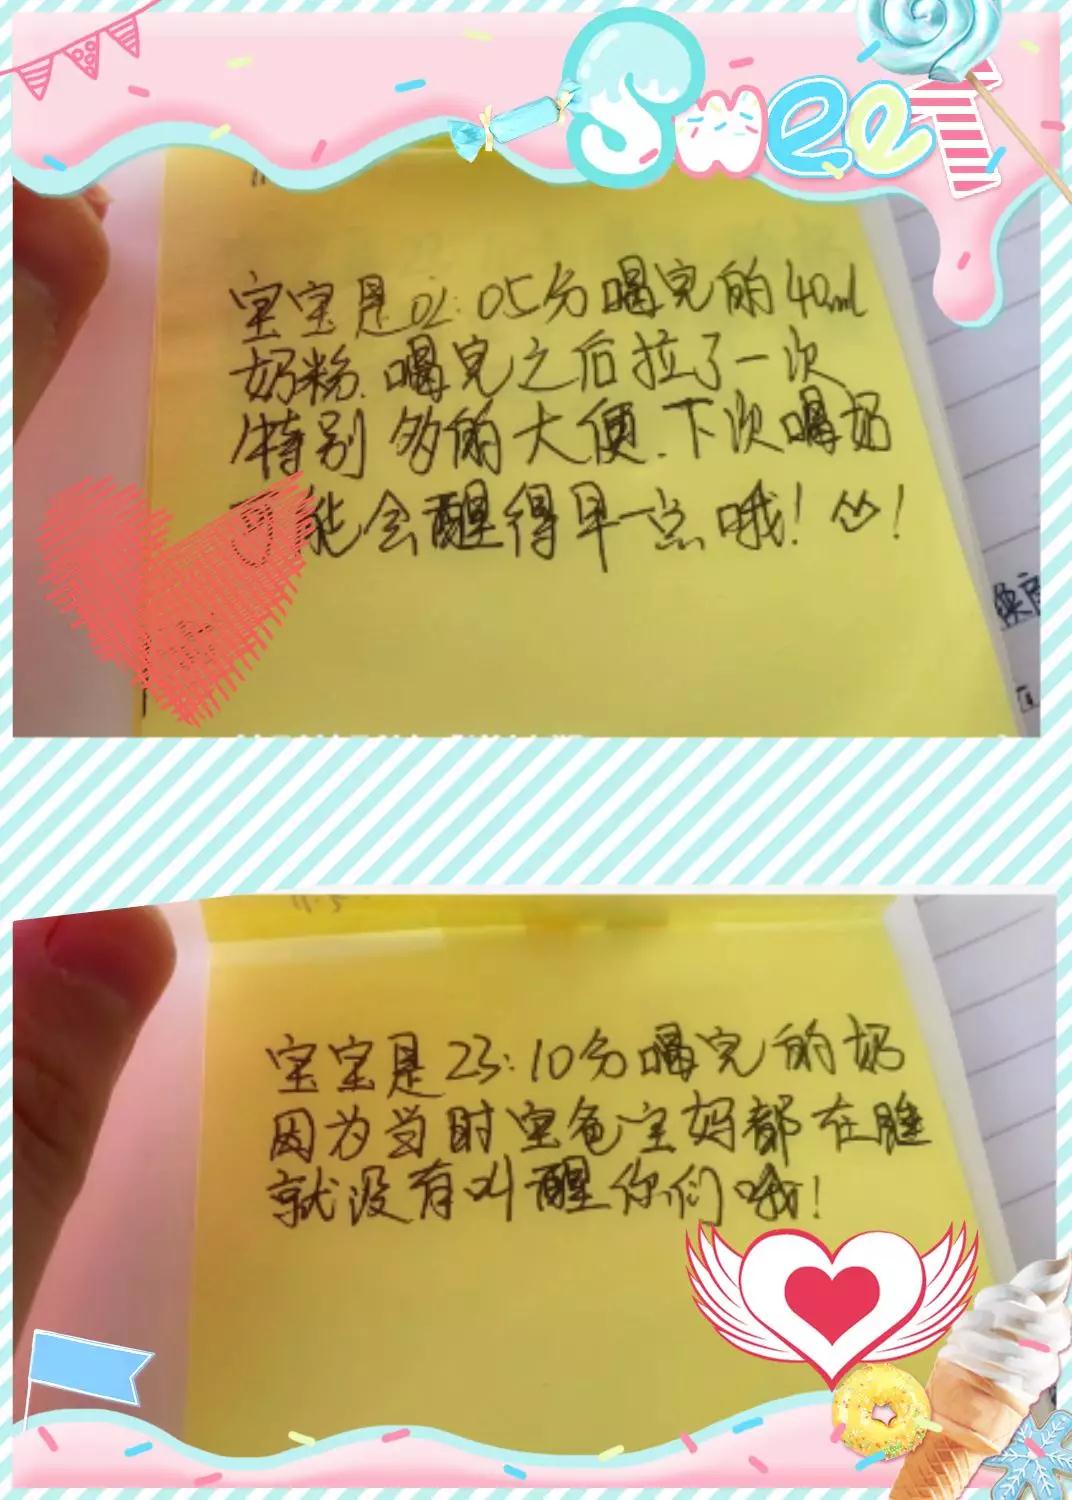 Sweet
宝宝是02:05分喝完的40ml
奶粉.喝完之后拉了一次
特别多的大便.下次喝奶
可能会醒得早一点哦!!
宝宝是23:10分喝完的奶
因为当时宝爸宝妈都在睡
就没有叫醒你们哦!